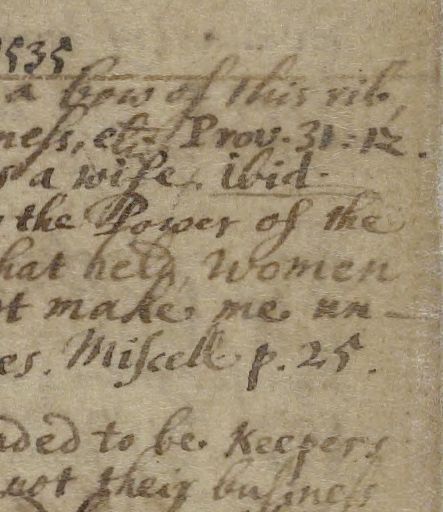 3535
a bow of this rib,
ness, etc. Prov. 31: 12.
s a wife. ibid.
the Power of the
hat held, Women
ot make me un-
es. Miscell. p. 25.
nded to be Keepers
not their business